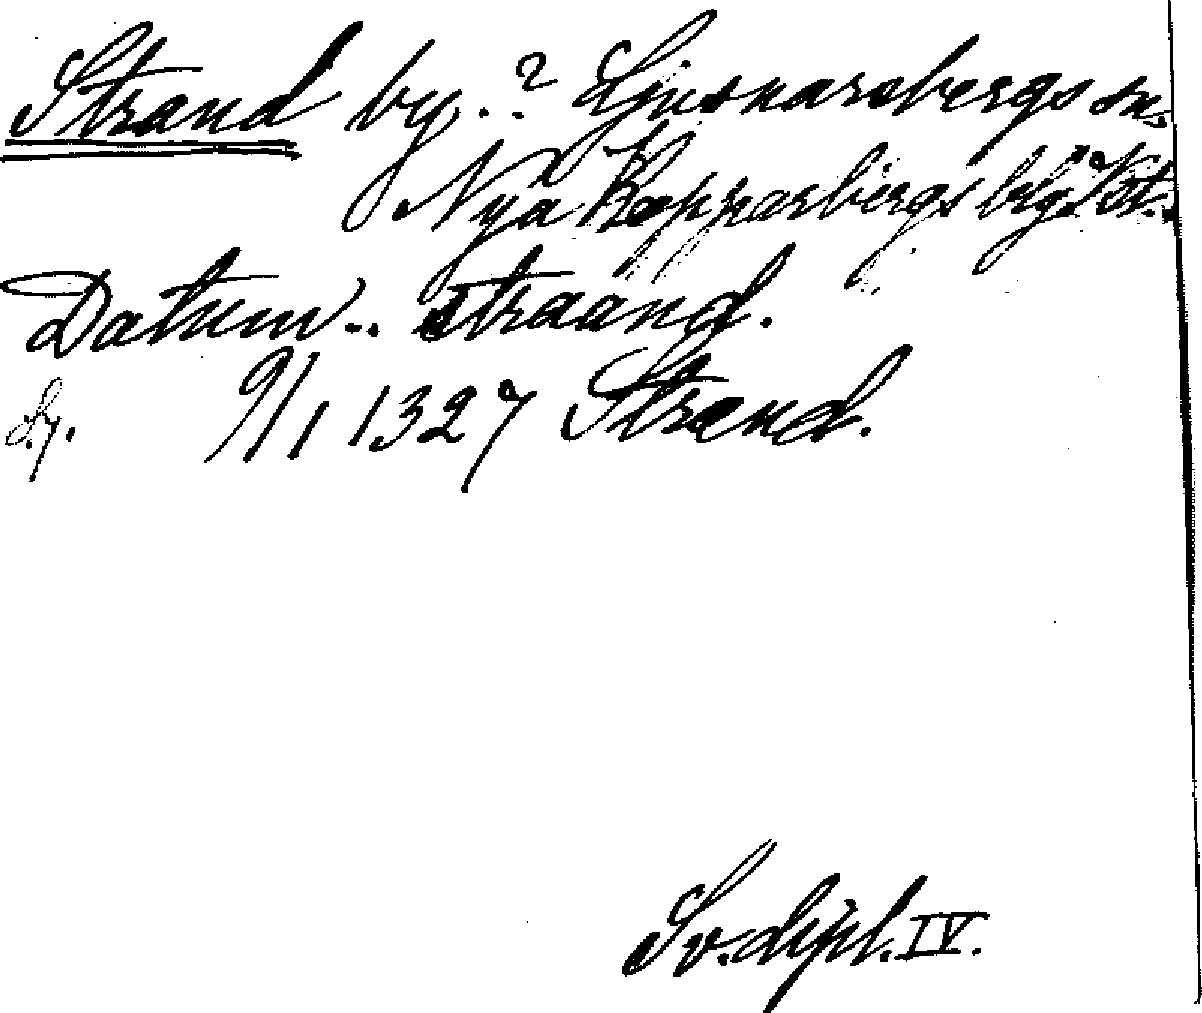 Strand by.? Ljusnarsbergs sn.
Nya Kopparbergs bslg. Vstm.
Datum.. straand.
9/1 1327 Strand.
Sv. dipl. IV.